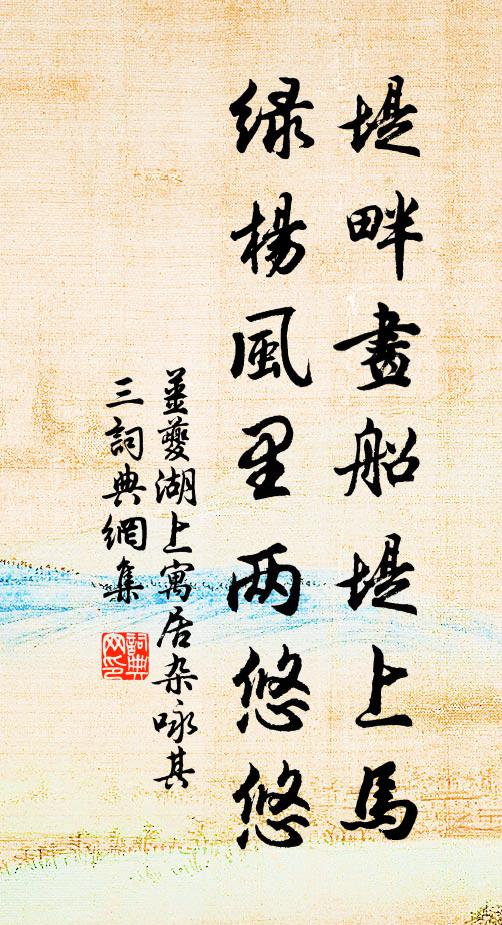 堤畔畫船堤上馬
綠楊風里两悠悠
姜夔湖上寓居杂咏其
三詞典網集
詞典
网印